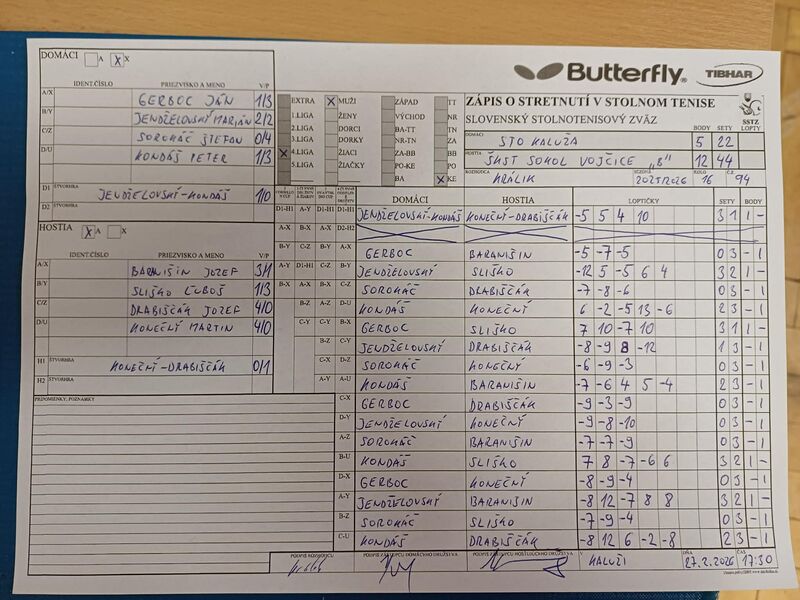 DOMÁCI A X X
Butterfly® TIBHAR
IDENT.ČÍSLO PRIEZVISKO A MENO V/P
A/X GERBOC JÁN 1/3
B/Y JENDŽELOVSKÝ MARIÁN 2/2
C/Z SOROHÁČ ŠTEFAN 0/4
D/U KONDÁŠ PETER 1/3
D1 ŠTVORHRA JENDŽELOVSKÝ-KONDÁŠ 1/0
D2
HOSTIA X A X
IDENT.ČÍSLO PRIEZVISKO A MENO V/P
A/X BARANIŠIN JOZEF 3/1
B/Y SLIŠKO ĽUBOŠ 1/3
C/Z DRABIŠČÁK JOZEF 4/0
D/U KONEČNÝ MARTIN 4/0
H1 ŠTVORHRA KONEČNÝ-DRABIŠČÁK 0/1
H2 ŠTVORHRA
PRIPOMIENKY, POZNÁMKY
EXTRA X MUŽI ZÁPAD TT
1.LIGA ŽENY VÝCHOD NR
2.LIGA DORCI BA-TT TN
3.LIGA DORKY NR-TN ZA
X 4.LIGA ŽIACI ZA-BB BB
5.LIGA ŽIAČKY PO-KE PO
BA X KE
ZÁPIS O STRETNUTÍ V STOLNOM TENISE
SLOVENSKÝ STOLNOTENISOVÝ ZVÄZ SSTZ
BODY SETY LOPTY
DOMÁCI STO KALUŽA 5 22
HOSTIA ŠKST SOKOL VOJČICE "B" 12 44
ROZHODCA KRÁLIK SEZÓNA 2025/2026 KOLO 16 Č. 94
DOMÁCI HOSTIA LOPTIČKY SETY BODY
D1-H1 A-Y D1-H1 D1-H1 JENDŽELOVSKÝ-KONDÁŠ KONEČNÝ-DRABIŠČÁK -5 5 4 10 3 1 1 -
A-X B-X A-X D2-H2
B-Y C-Z B-Y A-X GERBOC BARANIŠIN -5 -7 -5 0 3 - 1
A-Y D1-H1 C-Z B-Y JENDŽELOVSKÝ SLIŠKO -12 5 -5 6 4 3 2 1 -
B-X A-X B-X C-Z SOROHÁČ DRABIŠČÁK -7 -8 -6 0 3 - 1
B-Z A-Z D-U KONDÁŠ KONEČNÝ 6 -2 -5 13 -6 2 3 - 1
C-Y C-Y B-X GERBOC SLIŠKO 7 10 -7 10 3 1 1 -
B-Z C-Y JENDŽELOVSKÝ DRABIŠČÁK -8 -9 8 -12 1 3 - 1
C-X D-Z SOROHÁČ KONEČNÝ -6 -9 -3 0 3 - 1
A-Y A-U KONDÁŠ BARANIŠIN -7 -6 4 5 -4 2 3 - 1
C-X GERBOC DRABIŠČÁK -9 -3 -9 0 3 - 1
D-Y JENDŽELOVSKÝ KONEČNÝ -9 -8 -10 0 3 - 1
A-Z SOROHÁČ BARANIŠIN -7 -7 -9 0 3 - 1
B-U KONDÁŠ SLIŠKO 7 8 -7 -6 6 3 2 1 -
D-X GERBOC KONEČNÝ -8 -9 -4 0 3 - 1
A-Y JENDŽELOVSKÝ BARANIŠIN -8 12 -7 8 8 3 2 1 -
B-Z SOROHÁČ SLIŠKO -7 -9 -4 0 3 - 1
C-U KONDÁŠ DRABIŠČÁK -8 12 6 -2 -8 2 3 - 1
PODPIS ROZHODCU PODPIS ZÁSTUPCU DOMÁCEHO DRUŽSTVA PODPIS ZÁSTUPCU HOSŤUJÚCEHO DRUŽSTVA V KALUŽI DŇA 27.2.2026 ČAS 17:30